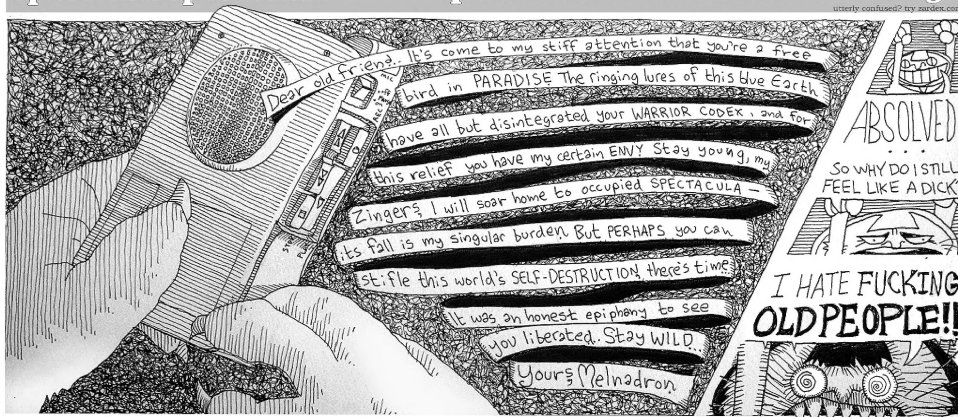 utterly confused? try zardex.com
Dear old friend.. It's come to my stiff attention that you're a free
bird in PARADISE The ringing lures of this blue Earth
have all but disintegrated your WARRIOR CODEX, and for
this relief you have my certain ENVY Stay young, my
Zingers, I will soar home to occupied SPECTACULA —
its fall is my singular burden. But PERHAPS you can
stifle this world's SELF-DESTRUCTION, there's time
It was an honest epiphany to see
you liberated. Stay WILD..
Yours, Melnadron
ABSOLVED
...
SO WHY DO I STILL
FEEL LIKE A DICK
I HATE FUCKING
OLD PEOPLE!!